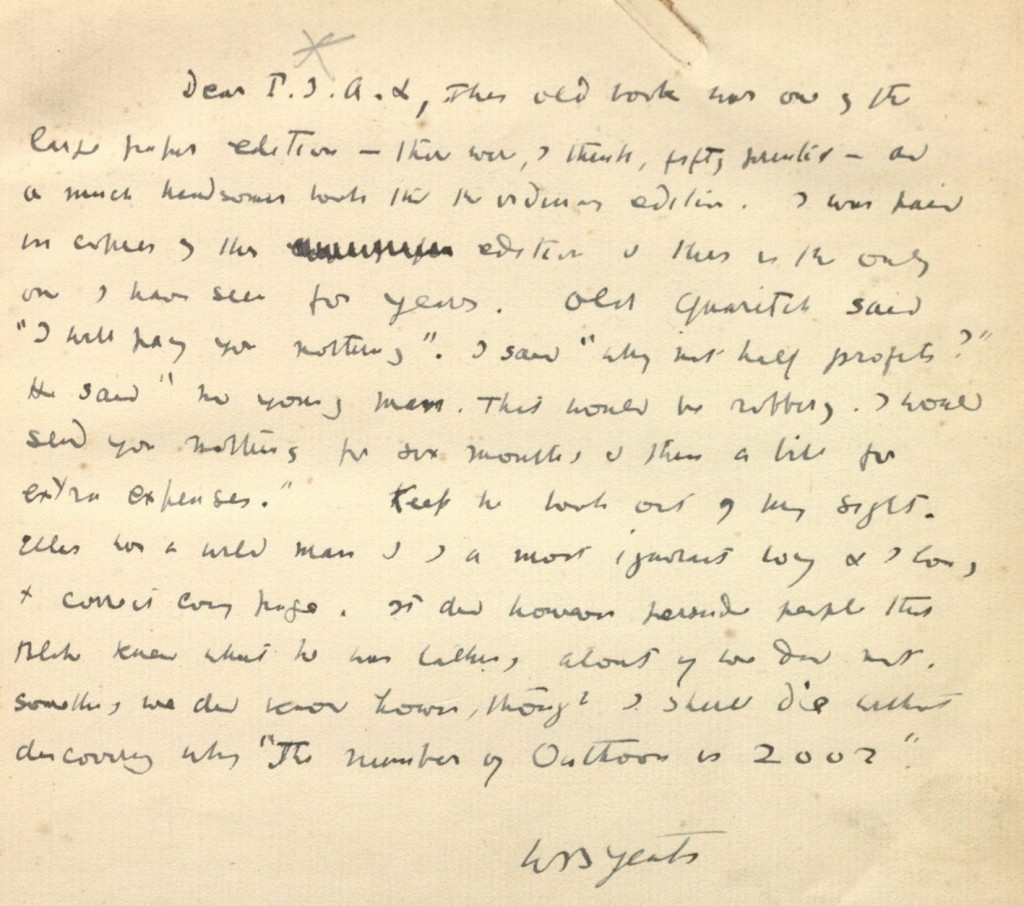 Dear P.S.A.L, This old book was one of the
large paper edition — there were, I think, fifty printed — and
a much handsomer book than the ordinary edition. I was paid
in copies of this edition & this is the only
one I have seen for years. Old Quaritch said
"I will pay you nothing". I said "why not half profits?"
He said "no young man. That would be robbery. I would
send you nothing for six months & then a bill for
extra expenses." Keep the book out of my sight.
Ellis was a wild man & I a most ignorant boy & I long
to correct every page. It did however persuade people that
Blake knew what he was talking about if we did not.
Something we did know however, though I shall die without
discovering why "The number of Outhoon is 2002".
WB Yeats